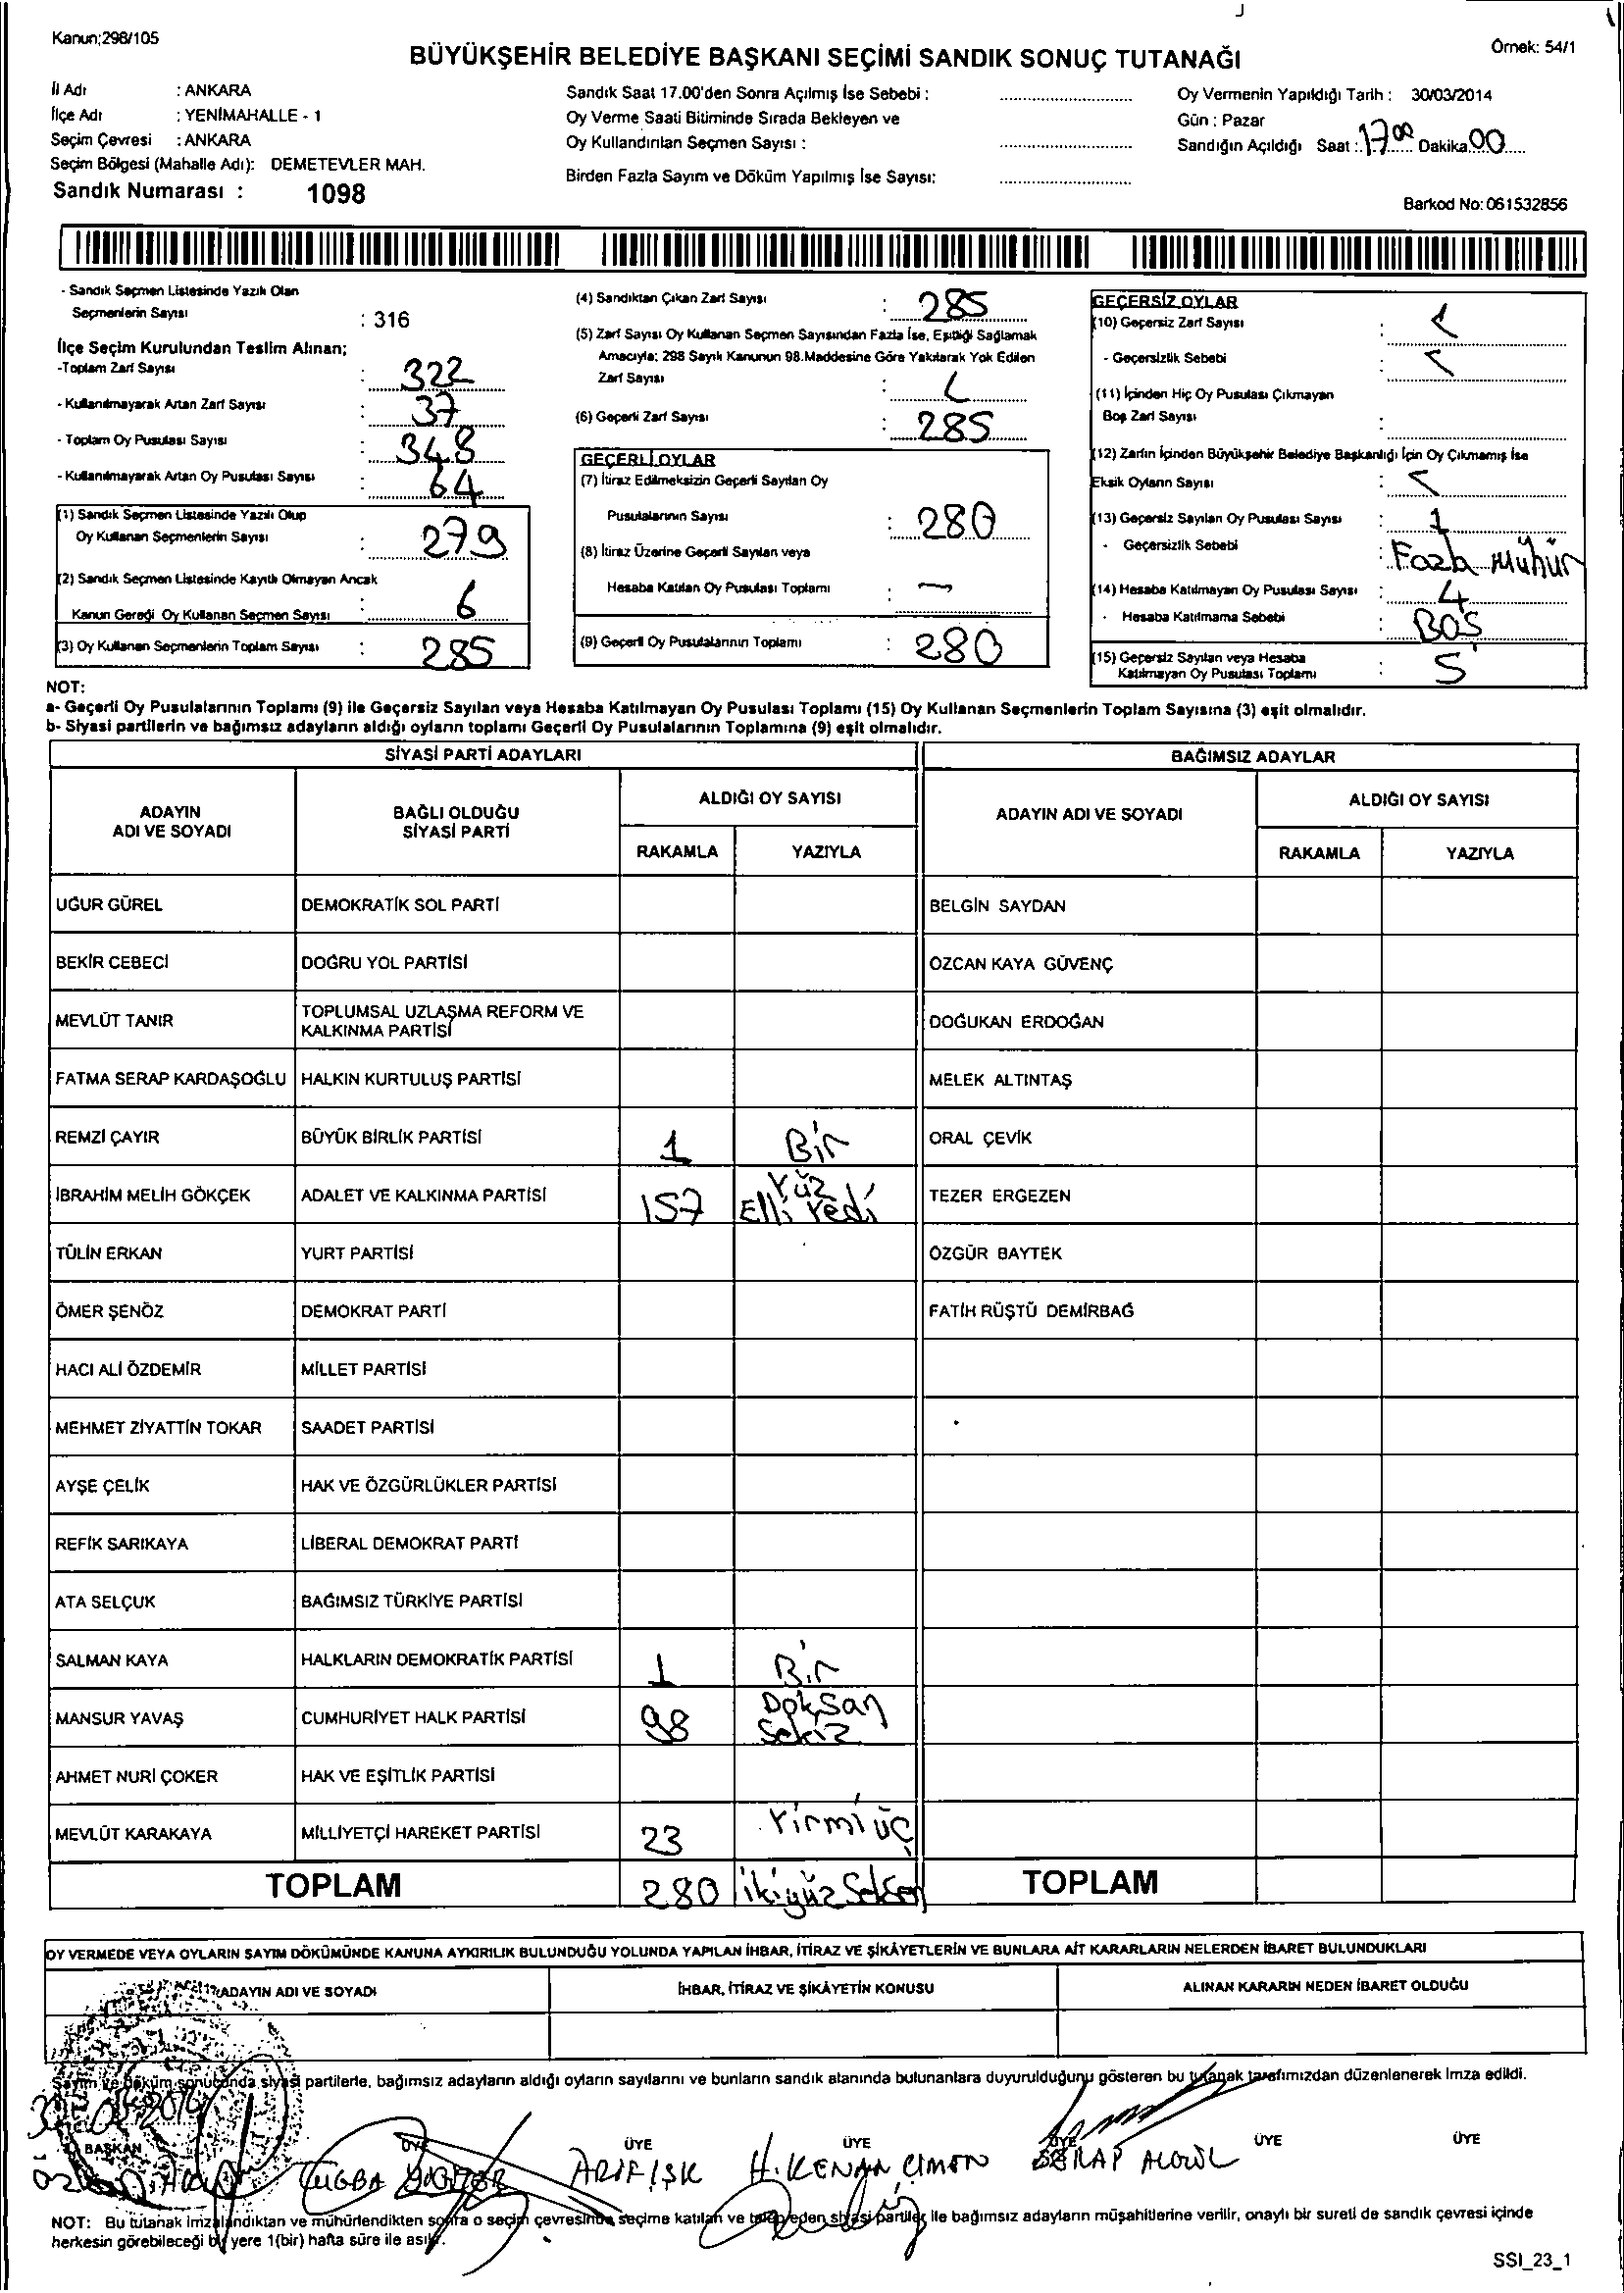 Kanun;298/105
Örnek: 54/1
BÜYÜKŞEHİR BELEDİYE BAŞKANI SEÇİMİ SANDIK SONUÇ TUTANAĞI
İl Adı : ANKARA
İlçe Adı : YENİMAHALLE - 1
Seçim Çevresi : ANKARA
Seçim Bölgesi (Mahalle Adı): DEMETEVLER MAH.
Sandık Numarası : 1098
Sandık Saat 17.00'den Sonra Açılmış İse Sebebi :
Oy Verme Saati Bitiminde Sırada Bekleyen ve
Oy Kullandırılan Seçmen Sayısı :
Birden Fazla Sayım ve Döküm Yapılmış İse Sayısı:
Oy Vermenin Yapıldığı Tarih : 30/03/2014
Gün : Pazar
Sandığın Açıldığı Saat : 17 00 Dakika 00
Barkod No: 061532856
- Sandık Seçmen Listesinde Yazılı Olan
Seçmenlerin Sayısı : 316
İlçe Seçim Kurulundan Teslim Alınan;
-Toplam Zarf Sayısı : 322
- Kullanılmayarak Artan Zarf Sayısı : 37
- Toplam Oy Pusulası Sayısı : 348
- Kullanılmayarak Artan Oy Pusulası Sayısı : 64
(1) Sandık Seçmen Listesinde Yazılı Olup
Oy Kullanan Seçmenlerin Sayısı : 279
(2) Sandık Seçmen Listesinde Kayıtlı Olmayan Ancak
Kanun Gereği Oy Kullanan Seçmen Sayısı : 6
(3) Oy Kullanan Seçmenlerin Toplam Sayısı : 285
(4) Sandıktan Çıkan Zarf Sayısı : 285
(5) Zarf Sayısı Oy Kullanan Seçmen Sayısından Fazla İse, Eşitliği Sağlamak
Amacıyla; 298 Sayılı Kanunun 98.Maddesine Göre Yakılarak Yok Edilen
Zarf Sayısı :
(6) Geçerli Zarf Sayısı : 285
GEÇERLİ OYLAR
(7) İtiraz Edilmeksizin Geçerli Sayılan Oy
Pusulalarının Sayısı : 280
(8) İtiraz Üzerine Geçerli Sayılan veya
Hesaba Katılan Oy Pusulası Toplamı : -
(9) Geçerli Oy Pusulalarının Toplamı : 280
GEÇERSİZ OYLAR
(10) Geçersiz Zarf Sayısı :
- Geçersizlik Sebebi :
(11) İçinden Hiç Oy Pusulası Çıkmayan
Boş Zarf Sayısı :
(12) Zarfın İçinden Büyükşehir Belediye Başkanlığı İçin Oy Çıkmamış İse
Eksik Oyların Sayısı :
(13) Geçersiz Sayılan Oy Pusulası Sayısı : 1
- Geçersizlik Sebebi : Fazla Mühür
(14) Hesaba Katılmayan Oy Pusulası Sayısı : 4
- Hesaba Katılmama Sebebi : BOŞ
(15) Geçersiz Sayılan veya Hesaba
Katılmayan Oy Pusulası Toplamı : 5
NOT:
a- Geçerli Oy Pusulalarının Toplamı (9) ile Geçersiz Sayılan veya Hesaba Katılmayan Oy Pusulası Toplamı (15) Oy Kullanan Seçmenlerin Toplam Sayısına (3) eşit olmalıdır.
b- Siyasi partilerin ve bağımsız adayların aldığı oyların toplamı Geçerli Oy Pusulalarının Toplamına (9) eşit olmalıdır.
SİYASİ PARTİ ADAYLARI
BAĞIMSIZ ADAYLAR
ADAYIN ADI VE SOYADI
BAĞLI OLDUĞU SİYASİ PARTİ
ALDIĞI OY SAYISI
RAKAMLA YAZIYLA
ADAYIN ADI VE SOYADI
ALDIĞI OY SAYISI
RAKAMLA YAZIYLA
UĞUR GÜREL DEMOKRATİK SOL PARTİ BELGİN SAYDAN
BEKİR CEBECİ DOĞRU YOL PARTİSİ ÖZCAN KAYA GÜVENÇ
MEVLÜT TANIR TOPLUMSAL UZLAŞMA REFORM VE KALKINMA PARTİSİ DOĞUKAN ERDOĞAN
FATMA SERAP KARDAŞOĞLU HALKIN KURTULUŞ PARTİSİ MELEK ALTINTAŞ
REMZİ ÇAYIR BÜYÜK BİRLİK PARTİSİ 1 Bir ORAL ÇEVİK
İBRAHİM MELİH GÖKÇEK ADALET VE KALKINMA PARTİSİ 157 Yüz Elli Yedi TEZER ERGEZEN
TÜLİN ERKAN YURT PARTİSİ ÖZGÜR BAYTEK
ÖMER ŞENÖZ DEMOKRAT PARTİ FATİH RÜŞTÜ DEMİRBAĞ
HACI ALİ ÖZDEMİR MİLLET PARTİSİ
MEHMET ZİYATTİN TOKAR SAADET PARTİSİ
AYŞE ÇELİK HAK VE ÖZGÜRLÜKLER PARTİSİ
REFİK SARIKAYA LİBERAL DEMOKRAT PARTİ
ATA SELÇUK BAĞIMSIZ TÜRKİYE PARTİSİ
SALMAN KAYA HALKLARIN DEMOKRATİK PARTİSİ 1 Bir
MANSUR YAVAŞ CUMHURİYET HALK PARTİSİ 98 Doksan Sekiz
AHMET NURİ ÇOKER HAK VE EŞİTLİK PARTİSİ
MEVLÜT KARAKAYA MİLLİYETÇİ HAREKET PARTİSİ 23 Yirmi üç
TOPLAM 280 ikiyüz Seksen TOPLAM
OY VERMEDE VEYA OYLARIN SAYIM DÖKÜMÜNDE KANUNA AYKIRILIK BULUNDUĞU YOLUNDA YAPILAN İHBAR, İTİRAZ VE ŞİKÂYETLERİN VE BUNLARA AİT KARARLARIN NELERDEN İBARET BULUNDUKLARI
ADAYIN ADI VE SOYADI İHBAR, İTİRAZ VE ŞİKÂYETİN KONUSU ALINAN KARARIN NEDEN İBARET OLDUĞU
Sayım ve döküm sonucunda siyasi partilerle, bağımsız adayların aldığı oyların sayılarını ve bunların sandık alanında bulunanlara duyurulduğunu gösteren bu tutanak tarafımızdan düzenlenerek imza edildi.
BAŞKAN ÜYE ÜYE ÜYE ÜYE ÜYE ÜYE
TUĞBA ARIF IŞIK H. KENAN ÇİMEN SERAP
NOT: Bu tutanak imzalandıktan ve mühürlendikten sonra o seçim çevresinde seçime katılan ve talep eden siyasi partiler ile bağımsız adayların müşahitlerine verilir, onaylı bir sureti de sandık çevresi içinde
herkesin görebileceği bir yere 1(bir) hafta süre ile asılır.
SSI_23_1